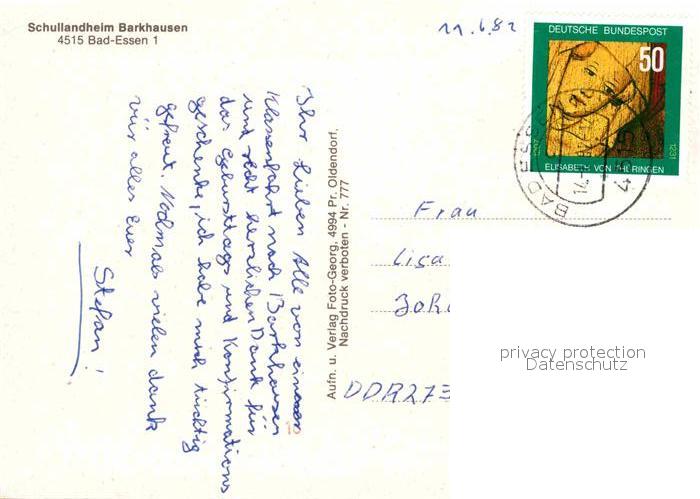 Schullandheim Barkhausen
4515 Bad-Essen 1
11.6.82
DEUTSCHE BUNDESPOST
50
1231
ELISABETH VON THÜRINGEN
BAD ESSEN
4515
Ihr Lieben Alle von einer
Klassenfahrt nach Barkhausen
und recht herzlichen Dank für
das Geburttags und Konfirmations
geschenke, ich habe mich richtig
gefreut. Nochmals vielen dank
vür alles Euer
Stefan!
Aufn. u. Verlag Foto-Georg, 4994 Pr. Oldendorf,
Nachdruck verboten - Nr. 777
Frau
Lisa
DDR 273
privacy protection
Datenschutz